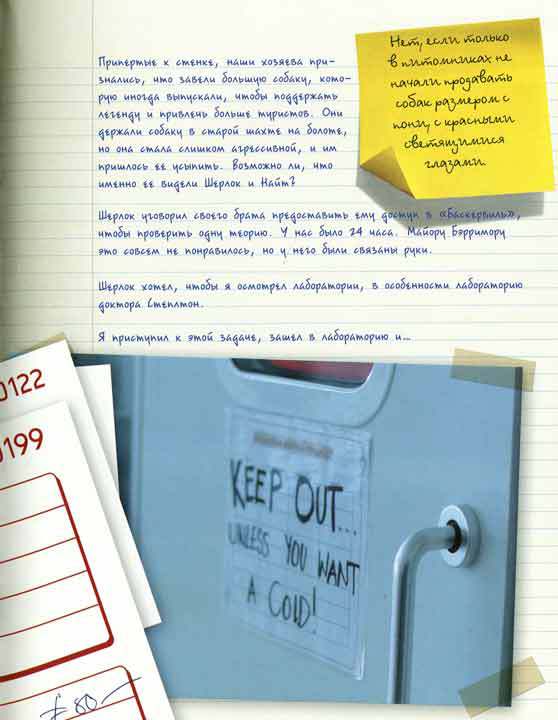 Припертые к стенке, наши хозяева при-
знались, что завели большую собаку, кото-
рую иногда выпускали, чтобы поддержать
легенду и привлечь больше туристов. Они
держали собаку в старой шахте на болоте,
но она стала слишком агрессивной, и им
пришлось ее усыпить. Возможно ли, что
именно ее видели Шерлок и Найт?
Нет, если только
в питомниках не
начали продавать
собак размером с
пони, с красными
светящимися
глазами.
Шерлок уговорил своего брата предоставить ему доступ в «Баскервиль»,
чтобы проверить одну теорию. У нас было 24 часа. Майору Бэрримору
это совсем не понравилось, но у него были связаны руки.
Шерлок хотел, чтобы я осмотрел лаборатории, в особенности лабораторию
доктора Стэплтон.
Я приступил к этой задаче, зашел в лабораторию и...
0122
0199
KEEP OUT...
UNLESS YOU WANT
A COLD!
£ 80 —